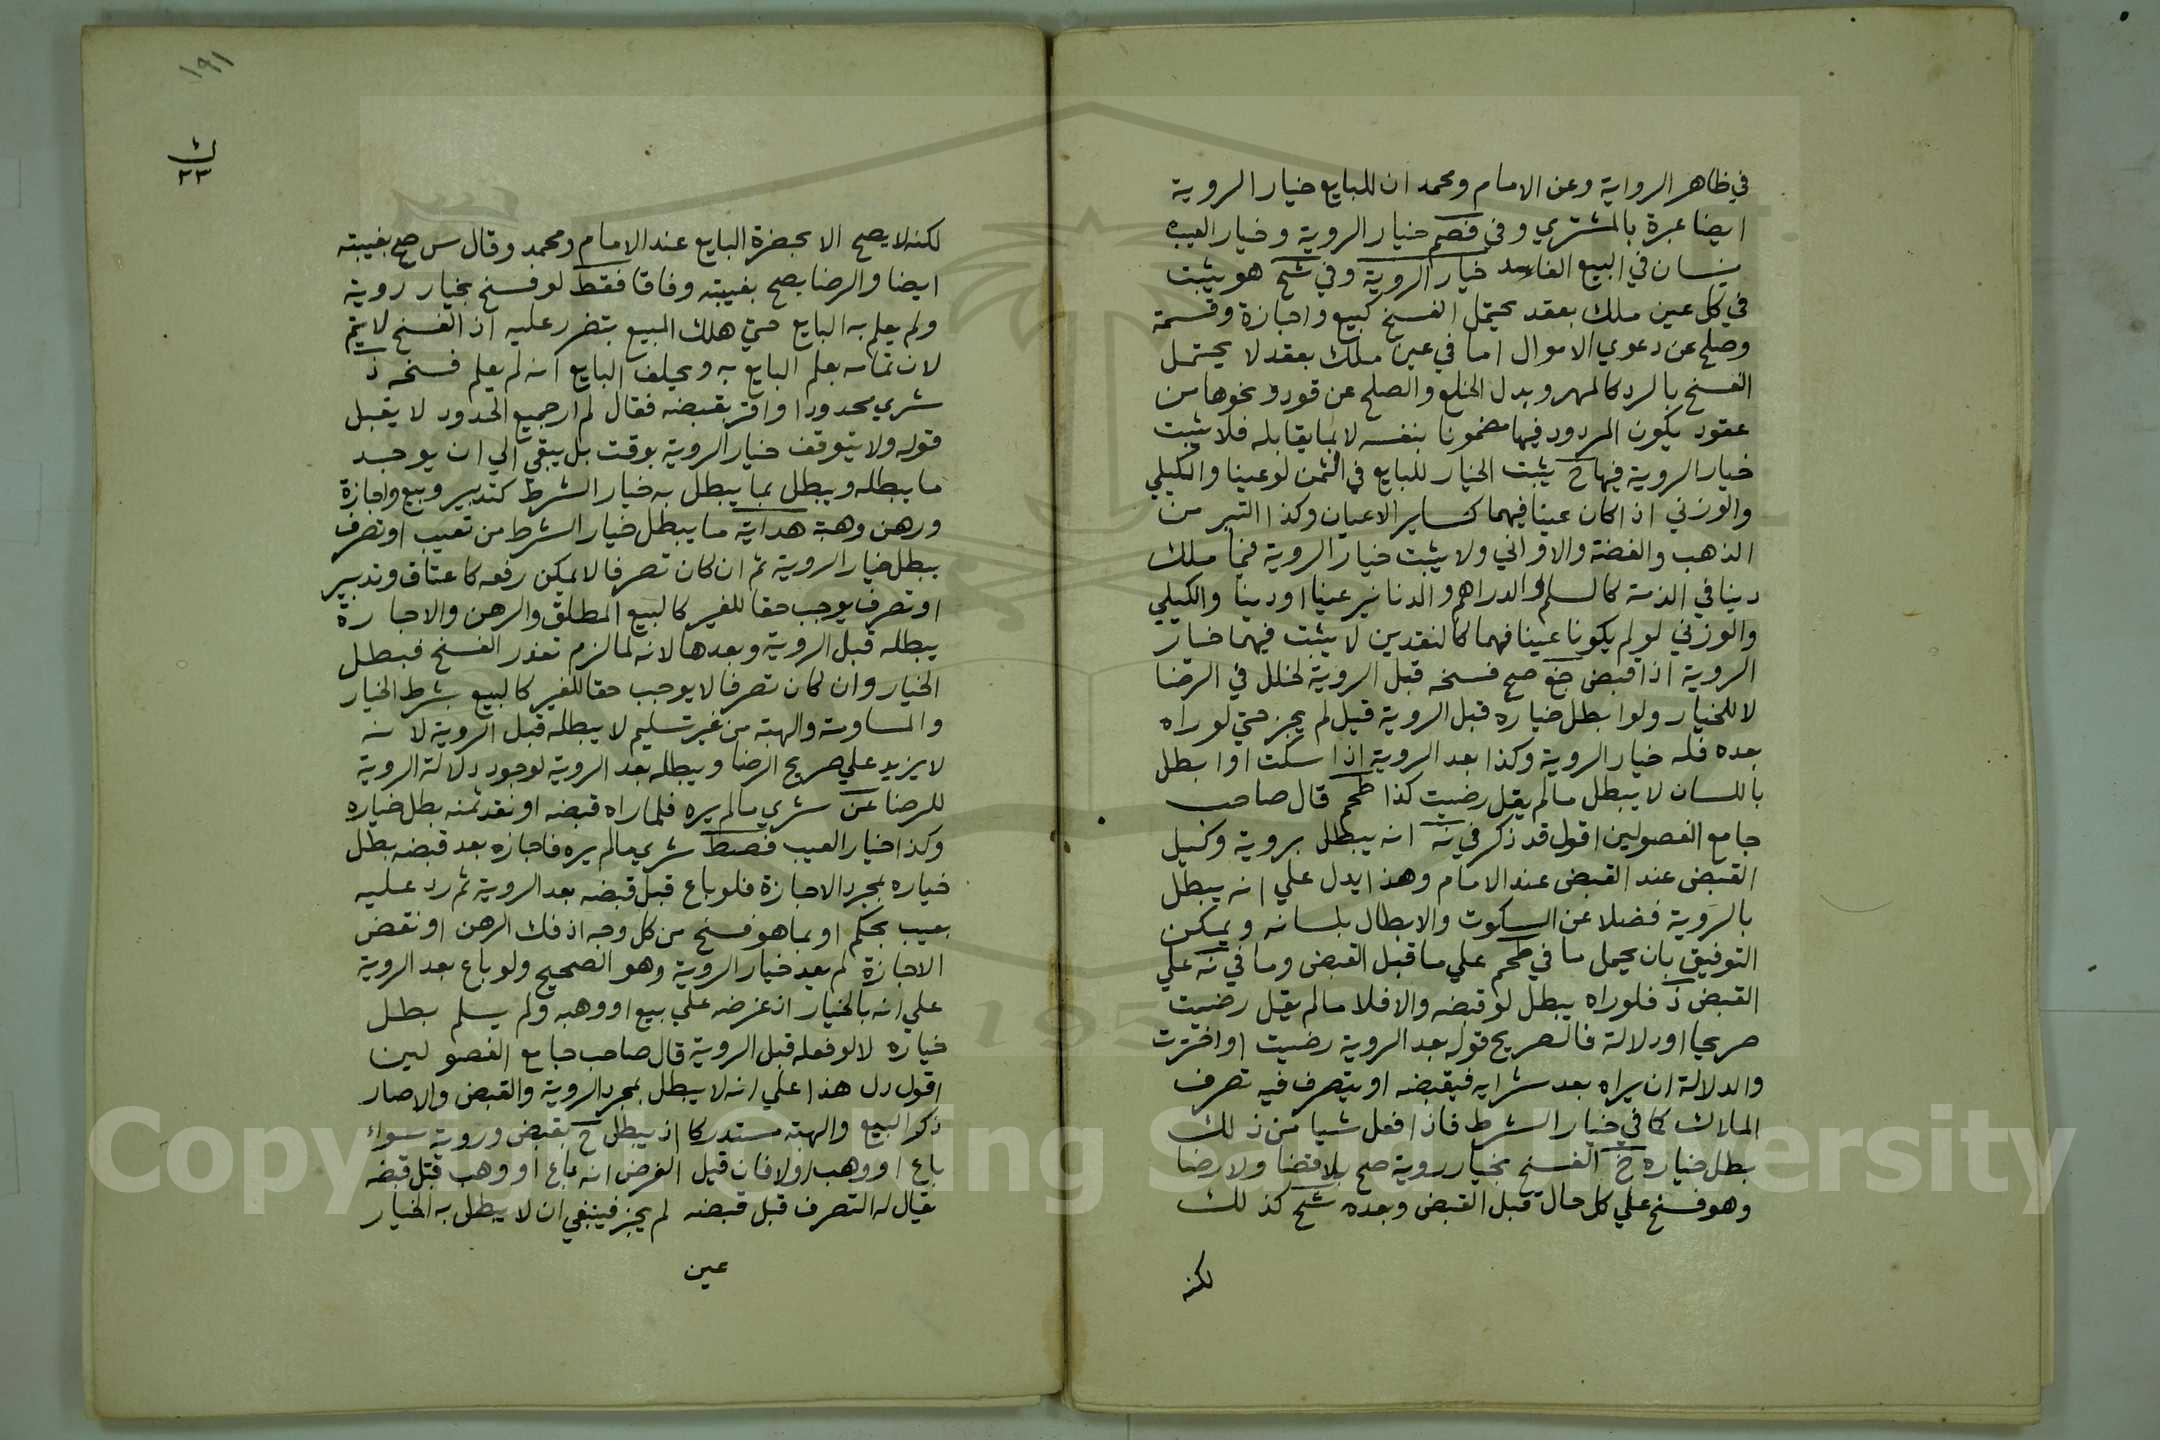 في ظاهر الرواية وعن الامام ومحمد ان للبايع خيار الروية
ايضا عبرة بالمشتري وفي فصم خيار الروية وخيار العيب
في البيع الفاسد خيار الروية وفي شح هو يثبت
في كل عين ملك بعقد يحتمل الفسخ كبيع واجازة وقسمة
وصلح عن دعوي الاموال اما في عين ملك بعقد لا يحتمل
الفسخ بالرد كالمهر وبدل الخلع والصلح عن قود ونحوها من
عقود يكون المردود فيها مضمونا بنفسه لا بما يقابله فلا يثبت
خيار الروية فيها خ يثبت الخيار للبايع في الثمن لو عينا والكيلي
والوزني اذا كان عينا فيهما كساير الاعيان وكذا التبر من
الذهب والفضة والاواني ولا يثبت خيار الروية فيما ملك
دينا في الذمة كالسلم والدراهم والدنانير عينا او دينا والكيلي
والوزني لو لم يكونا عينا فهما كالنقدين لا يثبت فيهما خيار
الروية اذا قبض جغ صح فسخه قبل الروية لخلل في الرضا
لا للخيار ولو ابطل خياره قبل الروية قيل لم يجز حتي لو راه
بعده فله خيار الروية وكذا بعد الروية اذا سكت او ابطل
باللسان لا يبطل ما لم يقل رضيت كذا طحم قال صاحب
جامع الفصولين اقول قد ذكر في نه انه يبطل بروية وكيل
القبض عند القبض عند الامام وهذا يدل علي انه يبطل
بالروية فضلا عن السكوت والابطال بلسانه ويمكن
التوفيق بان يحمل ما في طحم علي ما قبل القبض وما في نه علي
القبض ذ فلو راه يبطل لو قبضه والا فلا ما لم يقل رضيت
صريحا او دلالة فالصريح قوله بعد الروية رضيت او اخترت
والدلالة ان يراه بعد شرايه فيقبضه او يتصرف فيه تصرف
الملاك كما في خيار الشرط فاذا فعل شيا من ذلك
بطل خياره خ الفسخ بخيار روية صح بلا قضا ولا رضا
وهو فسخ علي كل حال قبل القبض وبعده شح كذلك
لكنه
١٩١
ك
٢٣
لكنه لا يصح الا بحضرة البايع عند الامام ومحمد وقال س صح بغيبته
ايضا والرضا يصح بغيبته وفاقا فقط لو فسخ بخيار روية
ولم يعلم به البايع حتي هلك المبيع يتضرر عليه اذ الفسخ لا يتم
لان تمامه بعلم البايع به ويحلف البايع انه لم يعلم فسخه ذ
شري محدودا واقر بقبضه فقال لم ار جميع الحدود لا يقبل
قوله ولا يتوقف خيار الروية بوقت بل يبقي الي ان يوجد
ما يبطله ويبطل بما يبطل به خيار الشرط كتدبير وبيع واجازة
ورهن وهبة هداية ما يبطل خيار الشرط من تعيب او تصرف
يبطل خيار الروية ثم ان كان تصرفا لا يمكن رفعه كاعتاق وتدبير
او تصرف يوجب حقا للغير كالبيع المطلق والرهن والاجارة
يبطله قبل الروية وبعدها لانه لما لزم تعذر الفسخ فبطل
الخيار وان كان تصرفا لا يوجب حقا للغير كالبيع بشرط الخيار
والمساومة والهبة من غير تسليم لا يبطله قبل الروية لانه
لا يزيد علي صريح الرضا ويبطله بعد الروية لوجود دلالة الروية
للرضا عن شري ما لم يره فلما راه قبضه او نقد ثمنه بطل خياره
وكذا خيار العيب فصط شري ما لم يره فاجازه بعد قبضه بطل
خياره بمجرد الاجازة فلو باع قبل قبضه بعد الروية ثم رد عليه
بعيب بحكم او بما هو فسخ من كل وجه اذ فك الرهن او نقض
الاجازة لم يعد خيار الروية وهو الصحيح ولو باع بعد الروية
علي انه بالخيار او عرضه علي بيع او وهبه ولم يسلم بطل
خياره لا لو فعله قبل الروية قال صاحب جامع الفصولين
اقول دل هذا علي انه لا يبطل بمجرد الروية والقبض والا صار
ذكر البيع والهبة مستدركا اذ يبطل خ بقبض وروية سواء
باع او وهب او لا فان قيل الغرض انه باع او وهب قبل قبضه
يقال له التصرف قبل قبضه لم يجز فينبغي ان لا يبطل به الخيار
عين
Copyright © King Saud University
195